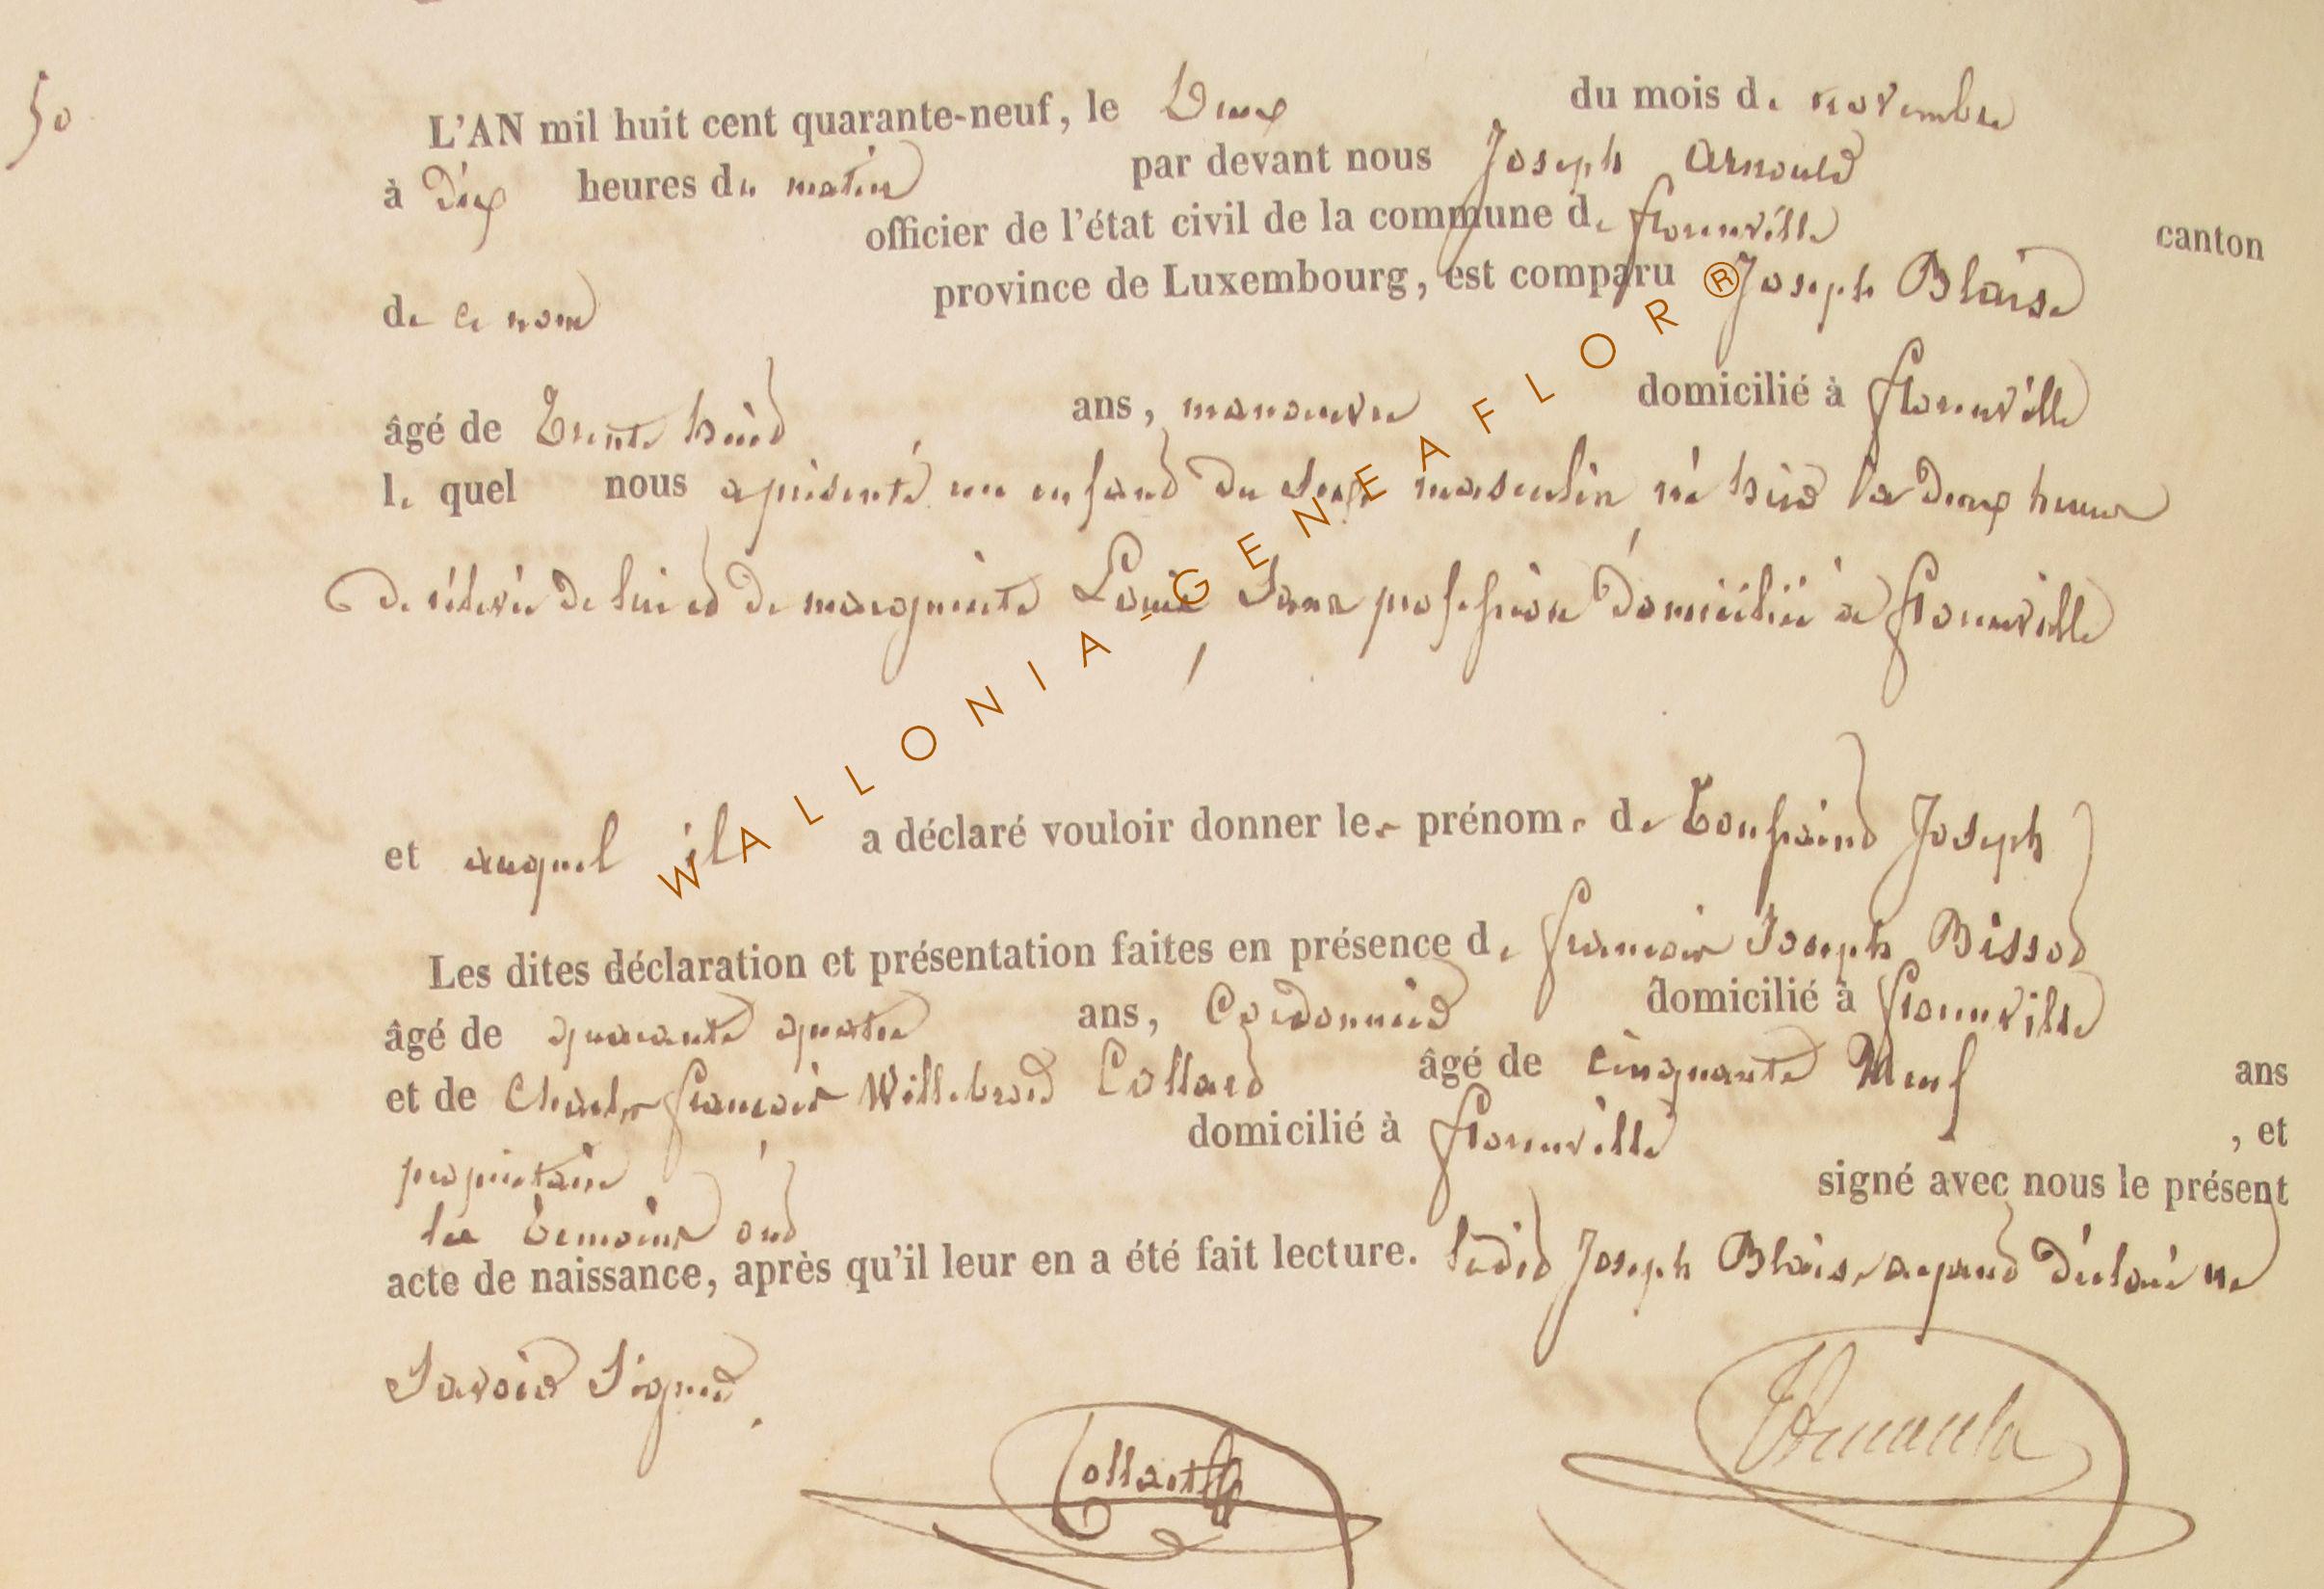 50
L'AN mil huit cent quarante-neuf, le Deux du mois de novembre
à dix heures du matin par devant nous Joseph Arnould
officier de l'état civil de la commune de florenville canton
de ce nom province de Luxembourg, est comparu Joseph Blaise
âgé de Trente huit ans, manoeuvre domicilié à florenville
le quel nous a présenté un enfant du sexe masculin né hier à deux heures
de rélevée de lui et de marguerite Louis sans profession domiciliée à florenville
et auquel il a déclaré vouloir donner les prénoms de Toussaint Joseph
Les dites déclaration et présentation faites en présence de francois Joseph Bissot
âgé de quarante quatre ans, Cordonnier domicilié à florenville
et de Charles francois Willebrord Collard âgé de cinquante Neuf ans
propriétaire domicilié à florenville , et
les temoins ont signé avec nous le présent
acte de naissance, après qu'il leur en a été fait lecture. ledit Joseph Blaise ayant déclaré ne
Savoir Signer.
WALLONIA-GENEAFLOR ®